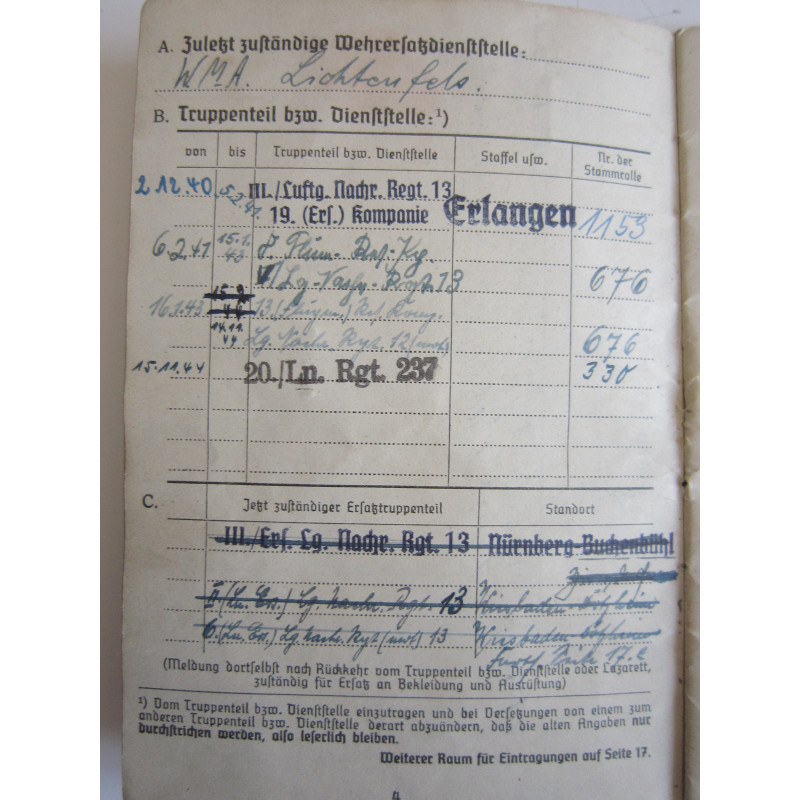 A. Zuletzt zuständige Wehrersatzdienststelle:
W.M.A. Lichtenfels.
B. Truppenteil bzw. Dienststelle:¹)
von bis Truppenteil bzw. Dienststelle Staffel usw. Nr. der Stammrolle
2.12.40 5.2.41 III./Luftg. Nachr. Regt. 13
19. (Ers.) Kompanie Erlangen 1153
6.2.41 15.1.43
13 676
16.1.43 13
14.11.44 Lg. Nachr. 676
15.11.44 20./Ln. Rgt. 237 330
C. Jetzt zuständiger Ersatztruppenteil Standort
III./Ers. Lg. Nachr. Rgt. 13 Nürnberg-Buchenbühl
II (Ln. Ers.) Lg. Nachr. Regt. 13 Wiesbaden
6. (Ln. Ers.) Lg. Nachr. Rgt (mot) 13 Wiesbaden
17.
(Meldung dortselbst nach Rückkehr vom Truppenteil bzw. Dienststelle oder Lazarett,
zuständig für Ersatz an Bekleidung und Ausrüstung)
¹) Vom Truppenteil bzw. Dienststelle einzutragen und bei Versetzungen von einem zum
anderen Truppenteil bzw. Dienststelle derart abzuändern, daß die alten Angaben nur
durchstrichen werden, also leserlich bleiben.
Weiterer Raum für Eintragungen auf Seite 17.
4